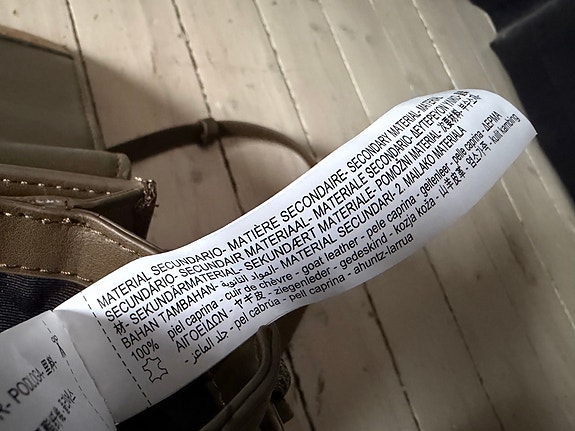 MATERIAL SECUNDARIO- MATIÈRE SECONDAIRE- SECONDARY MATERIAL- MATERIAL
SECUNDÁRIO- SECUNDAIR MATERIAAL- MATERIALE SECONDARIO- ΔΕΥΤΕΡΕΥΟΝ ΥΛΙΚΟ-
材- SEKUNDÄRMATERIAL- SEKUNDÆRT MATERIALE- POMOŽNI MATERIAL- 次要材料- 부소재-
BAHAN TAMBAHAN- المواد الثانوية- MATERIAL SECUNDARI- 2. MAILAKO MATERIALA
100% piel caprina - cuir de chèvre - goat leather - pele caprina - geitenleder - pelle caprina - ΔΕΡΜΑ
ΑΙΓΟΕΙΔΩΝ - ヤギ皮 - ziegenleder - gedeskind - kozja koža - 山羊皮革 - 염소가죽 - kulit kambing
- جلد الماعز - pel cabrúa - pell caprina - ahuntz-larrua
R- PODLOGA- 里料-